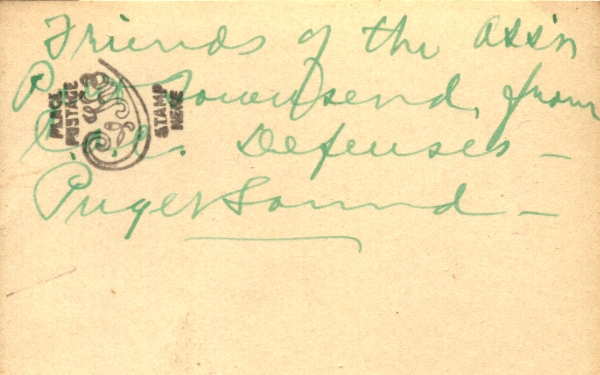 Friends of the Ass'n
Port Townsend, from
Defenses —
Puget Sound —
PLACE
POSTAGE
STAMP
HERE